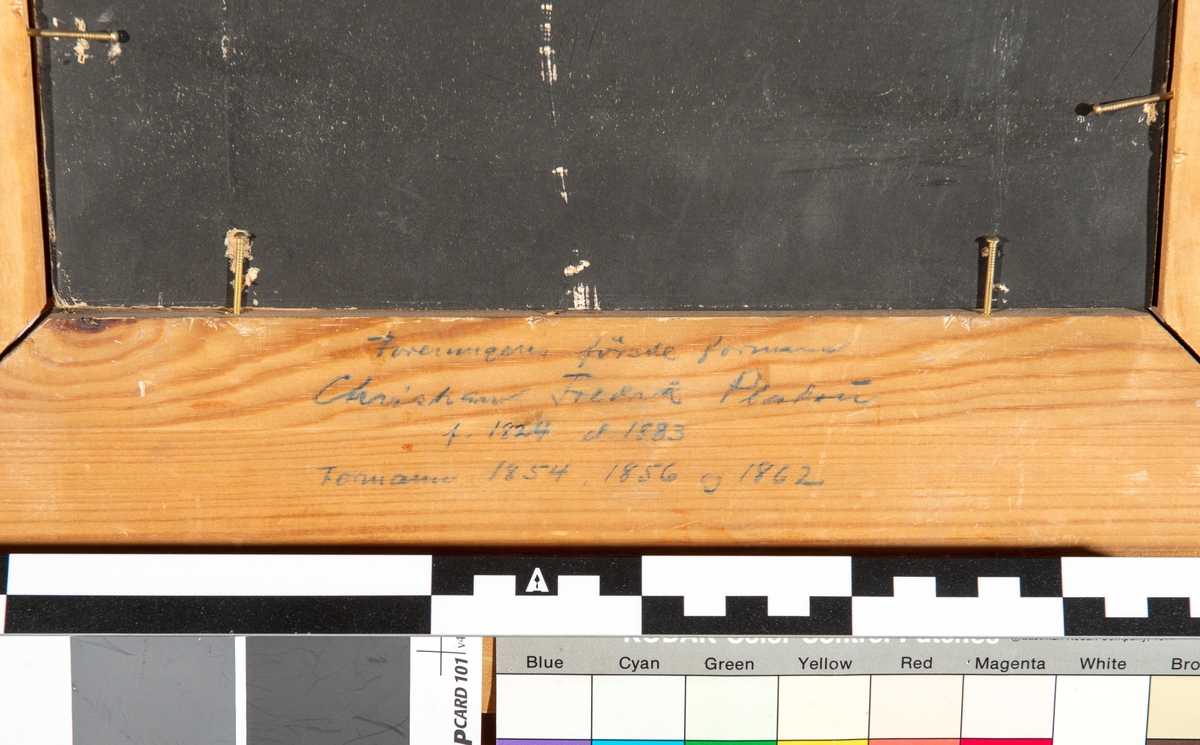 Foreningens første formann
Christian Fredrik Platou
f. 1824 d. 1883
Formann 1854, 1856 og 1862
A
PCARD 101 v4
KODAK Color Control Patches
Blue Cyan Green Yellow Red Magenta White Bro